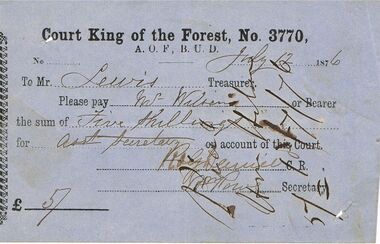 Court King of the Forest, No. 3770,
A. O. F., B. U. D.
No July 1876
To Mr. Lewis Treasurer.
Please pay Mr Wilson or Bearer
the sum of Five Shillings
for Asst Secretary on account of this Court.
C. R.
Secretary
£ 5/